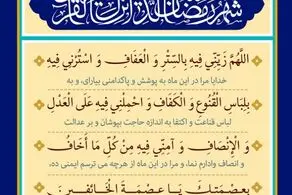 شهر رمضان الذی انزل فیه القرآن
اللَّهُمَّ زَيِّنِّي فِيهِ بِالسِّتْرِ وَ الْعَفَافِ وَ اسْتُرْنِي فِيهِ
خدایا مرا در این ماه به پوشش و پاکدامنی بیارای، و به
بِلِبَاسِ الْقُنُوعِ وَ الْكَفَافِ وَ احْمِلْنِي فِيهِ عَلَى الْعَدْلِ
لباس قناعت و اکتفا به اندازه حاجت بپوشان و بر عدالت
وَ الْإِنْصَافِ وَ آمِنِّي فِيهِ مِنْ كُلِّ مَا أَخَافُ
و انصاف وادارم نما، و مرا در این ماه از هرچه می ترسم ایمنی ده،
بِعِصْمَتِكَ يَا عِصْمَةَ الْخَائِفِينَ